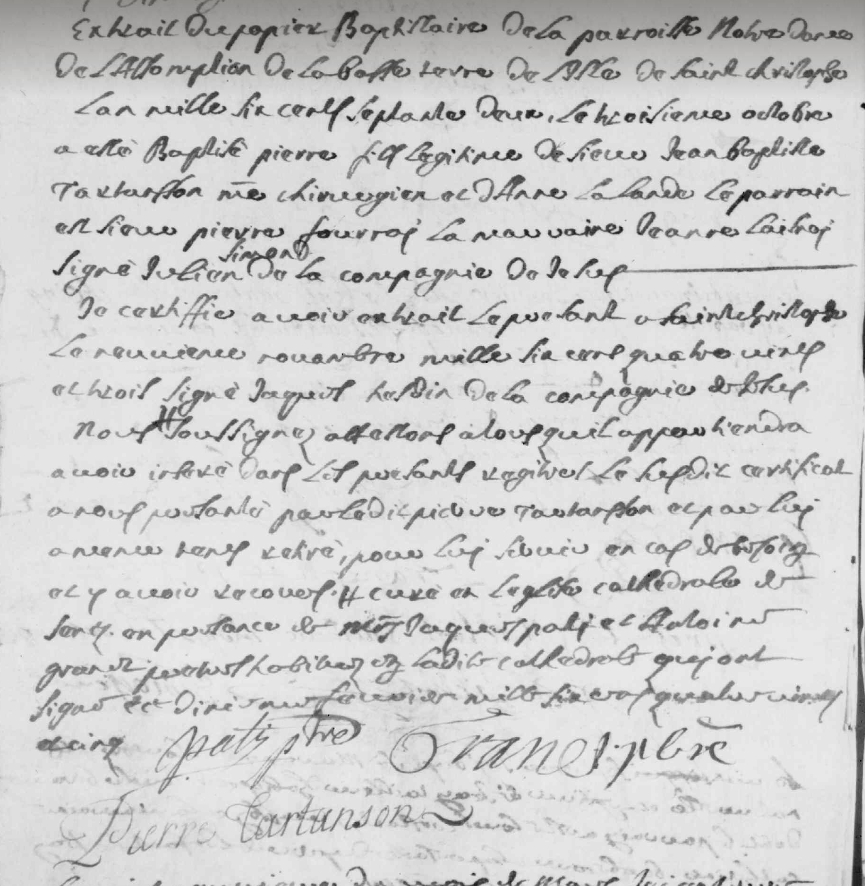 Extrait du papier Baptistaire de la parroisse Notre dame
de L'Assomption de la basse terre de L'Isle de saint christophe
Lan mille six cents septante deux, le troisieme octobre
a esté Baptisé pierre fils legitime de sieur Jean baptiste
Tartanson me chirurgien et d'Anne La lande Le parrain
est sieur pierre fourroj La marraine Jeanne
simond
signé Julien de la compagnie de Jesus
Je certiffie avoir extrait Le presant a saint christophe
Le neuvieme novambre mille six cens quatre vints
et trois signé Jaques hesdin de la compagnie de Jesus.
Nous # soussignez attestons a tous quil appartiendra
avoir inseré dans Les presants registres Le susdit certificat
a nous presanté par Ledit pierre Tartansson et par Luj
a meme temps retiré, pour luj servir en cas de besoing
et y avoir recours. # curé en Leglise cathedrale de
Senez. en presance de mres Jaques patj et Antoine
grane pretres habituez en Ladite cathedrale qui ont
signé Le dixneuf Janvier mille six cens quatre vints
et cinq patj ptre Grane, pbre
Pierre Tartanson